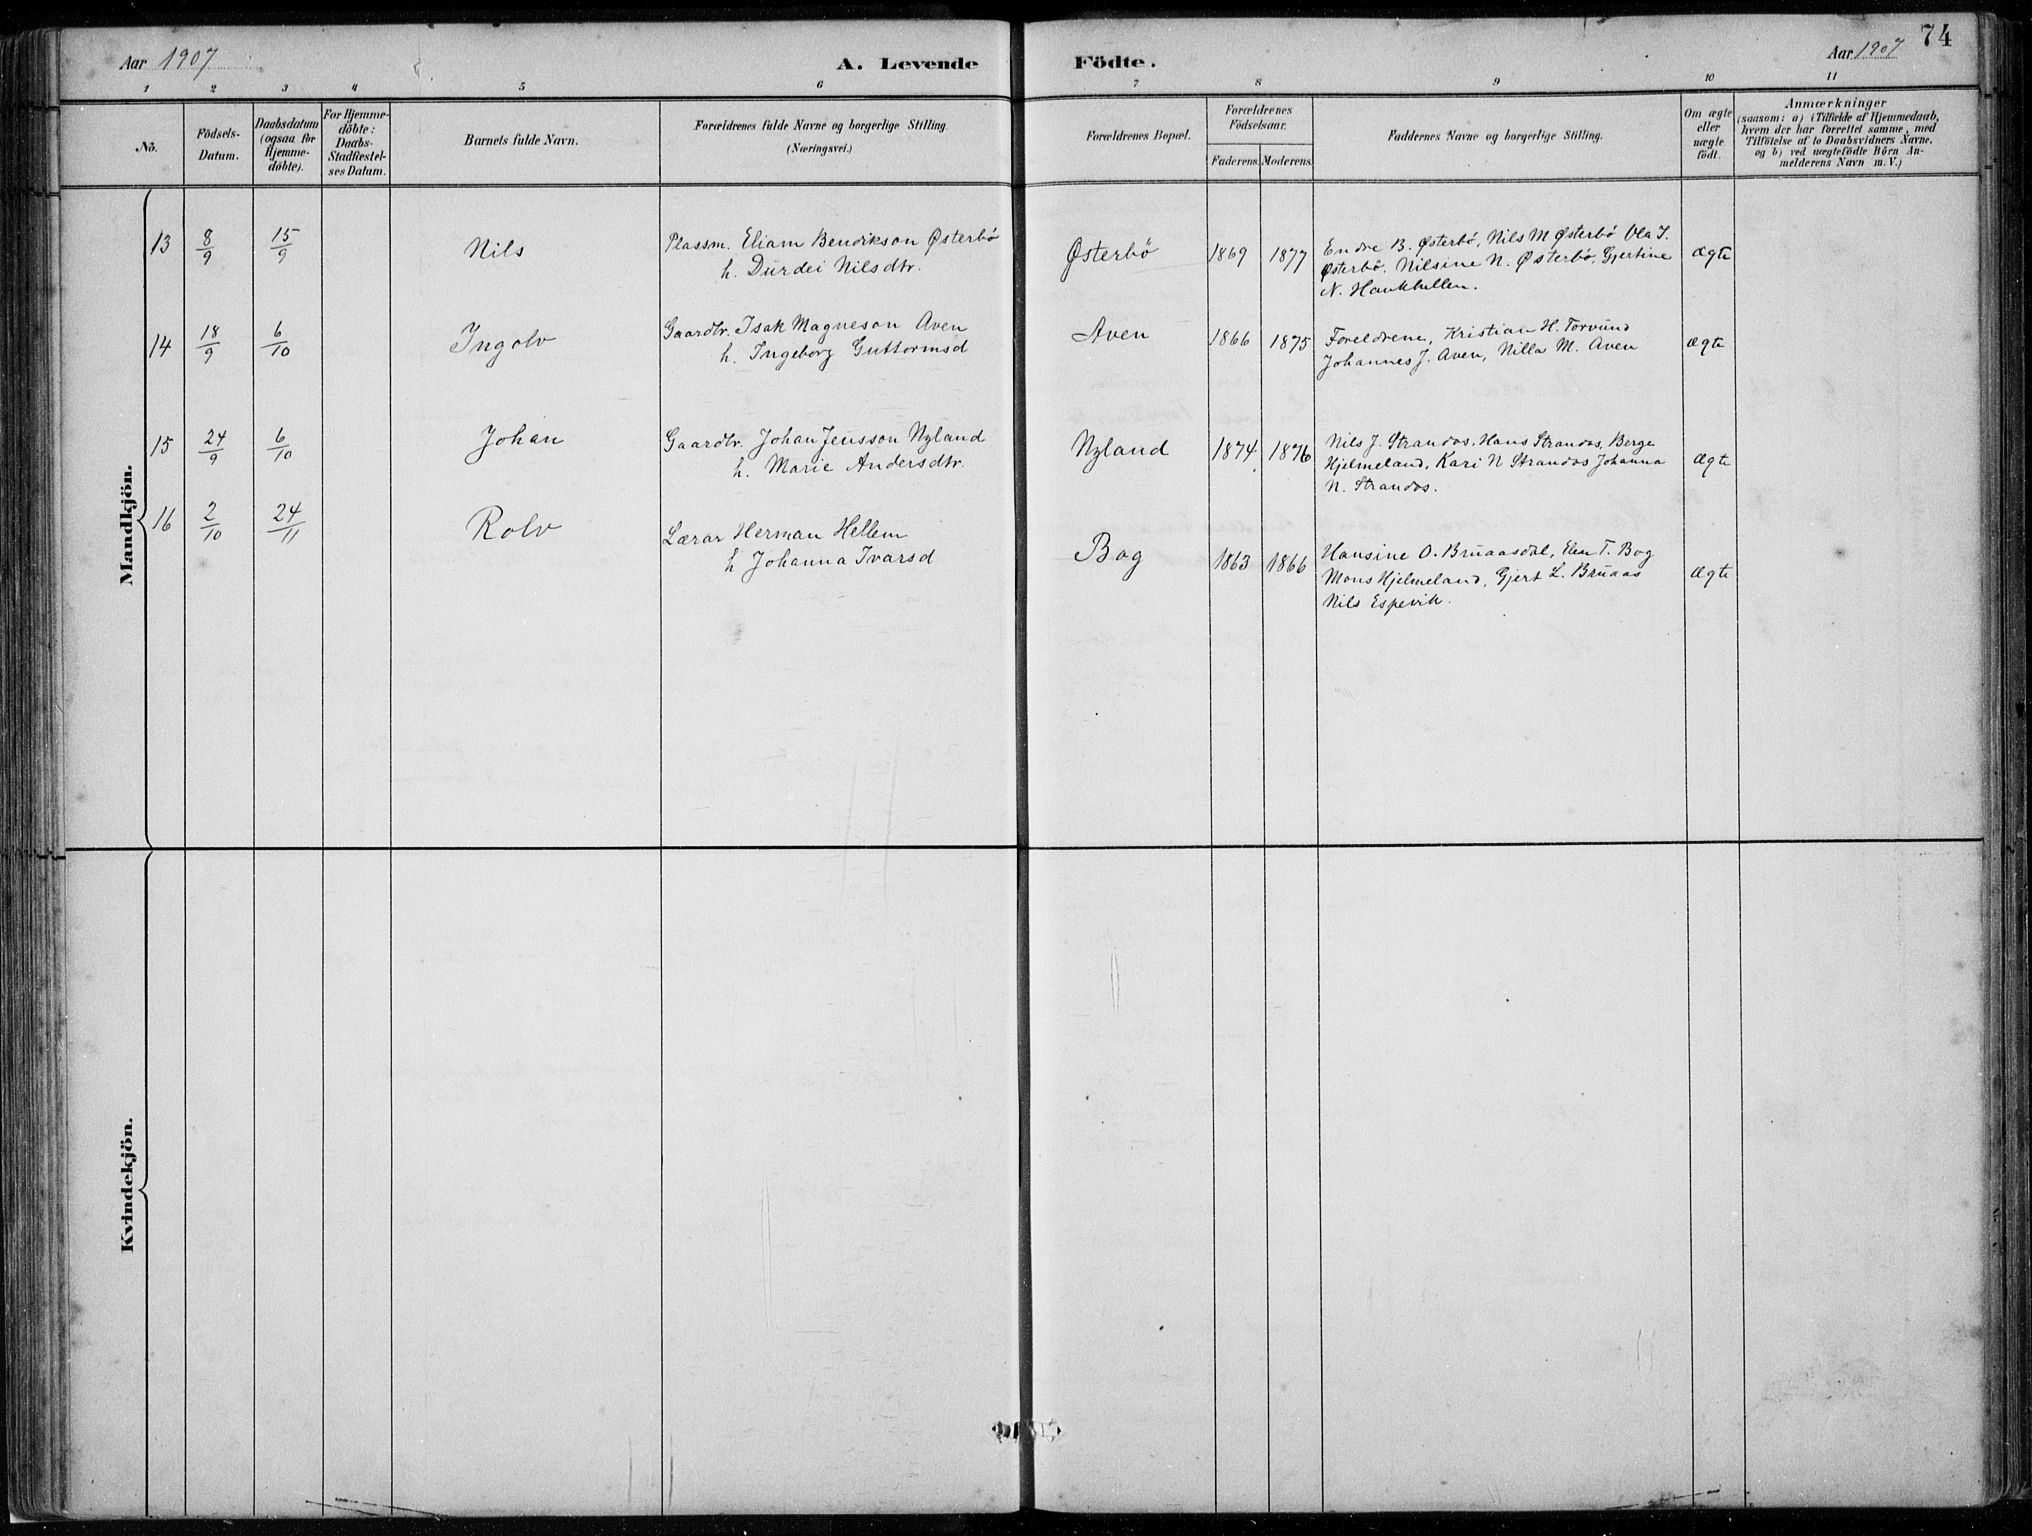 74
Aar 1907
A. Levende Födte.
Aar 1907
1 2 3 4 5 6 7 8 9 10 11
No.
Födsels-Datum.
Daabsdatum (ogsaa for Hjemme-döbte).
For Hjemme-döbte: Daabs-Stadfæstel-ses Datum.
Barnets fulde Navn.
Forældrenes fulde Navne og borgerlige Stilling.
(Næringsvei.)
Forældrenes Bopæl.
Forældrenes Födselsaar.
Faderens. Moderens.
Faddernes Navne og borgerlige Stilling.
Om ægte eller uægte födt.
Anmærkninger
(saasom: a) i Tilfælde af Hjemmedaab,
hvem der har forrettet samme, med
Tilföielse af to Daabsvidners Navne,
og b) ved uægtefödte Börn An-
melderens Navn m. V.)
Mandkjön.
13 8/9 15/9 Nils Plassm. Eliam Bendikson Østerbö Østerbö 1869 1877 Endre B. Østerbö, Nils M Østerbö Ola I. ægte
h. Durdei Nilsdtr. Østerbö, Nilsine N. Østerbö, Gjertine
N. Haukhellen.
14 18/9 6/10 Ingolv Gaardbr. Isak Magneson Aven Aven 1866 1875 Foreldrene, Kristian H. Torvund ægte
h. Ingeborg Guttormsd Johannes J. Aven, Nilla M. Aven
15 24/9 6/10 Johan Gaardbr. Johan Jensson Nyland Nyland 1874 1876 Nils J. Strandos, Hans Strandos, Berge ægte
h. Marie Andersdtr. Hjelmeland, Kari N Strandos Johanna
N. Strandos.
16 2/10 24/11 Rolv Lærar Herman Hellem Bog 1863 1866 Hansine O. Bruaasdal, Elen T. Bog ægte
h Johanna Ivarsd Mons Hjelmeland, Gjert L. Bruaas
Nils Espevik.
Kvindekjön.